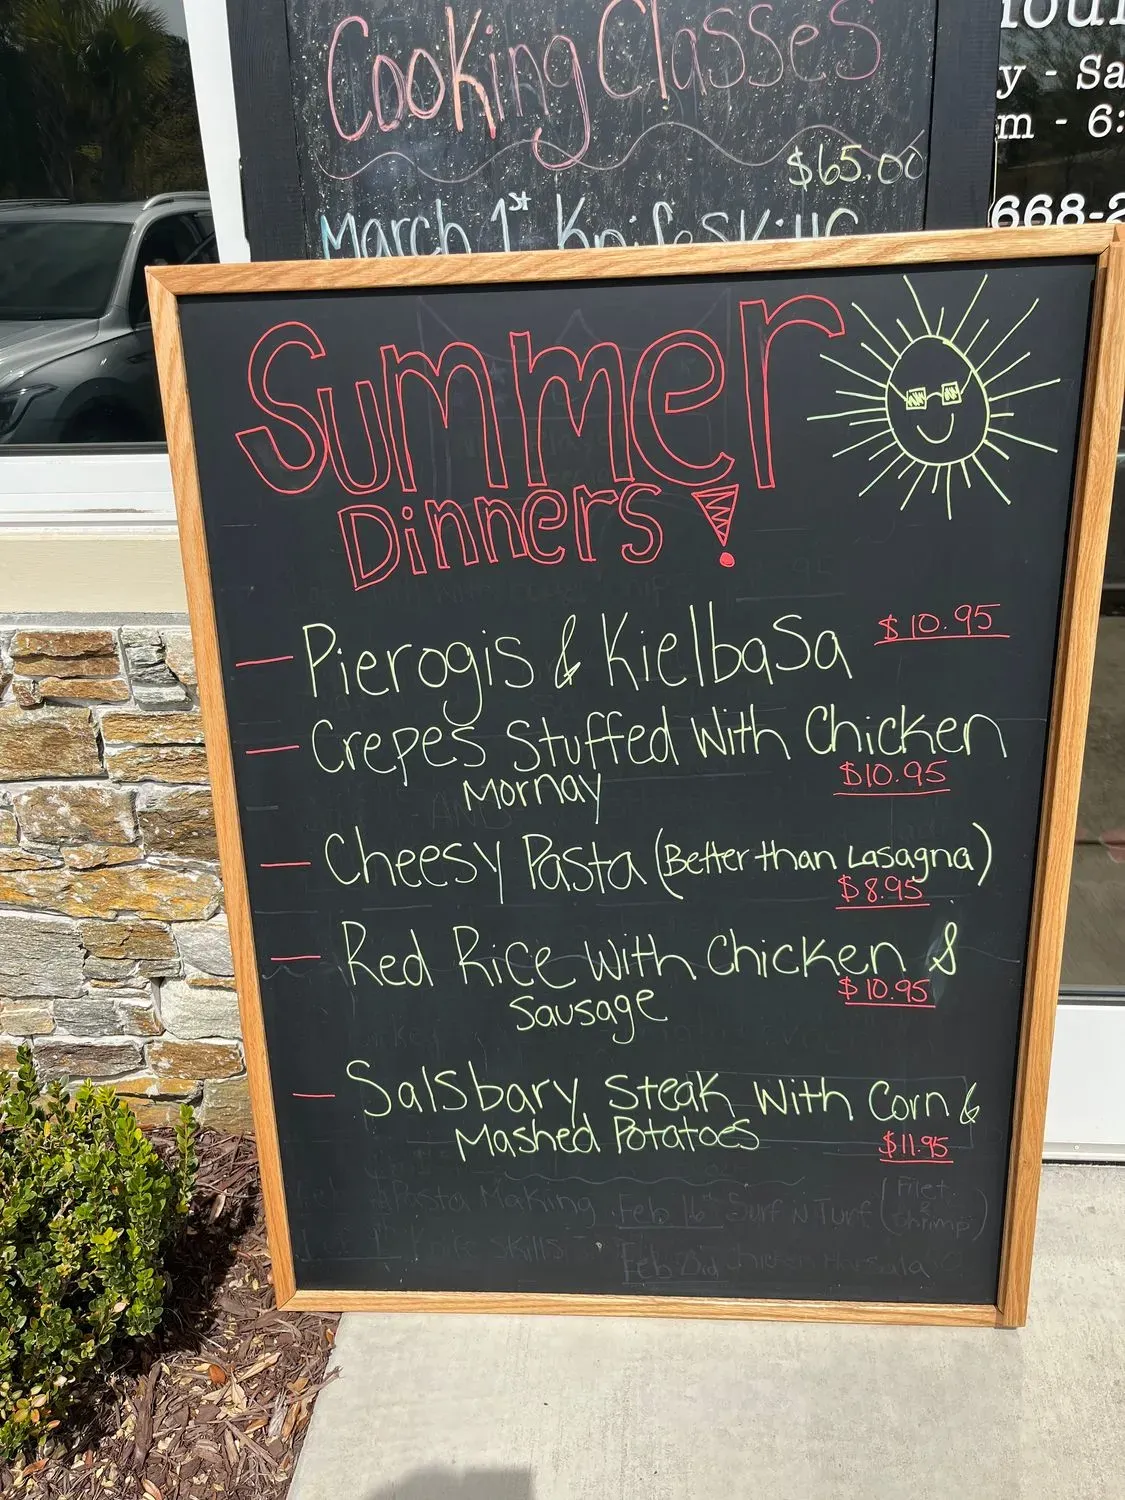 Cooking Classes
$65.00
March 1st Knife Skills
y - Sa
m - 6:
668-2
Summer
Dinners!
- Pierogis & Kielbasa $10.95
- Crepes Stuffed With Chicken
Mornay $10.95
- Cheesy Pasta (Better than Lasagna)
$8.95
- Red Rice With Chicken &
Sausage $10.95
- Salsbary Steak With Corn &
Mashed Potatoes $11.95
Pasta Making Feb 16th Surf N Turf (Filet & Shrimp)
Skills Feb Chicken Marsala